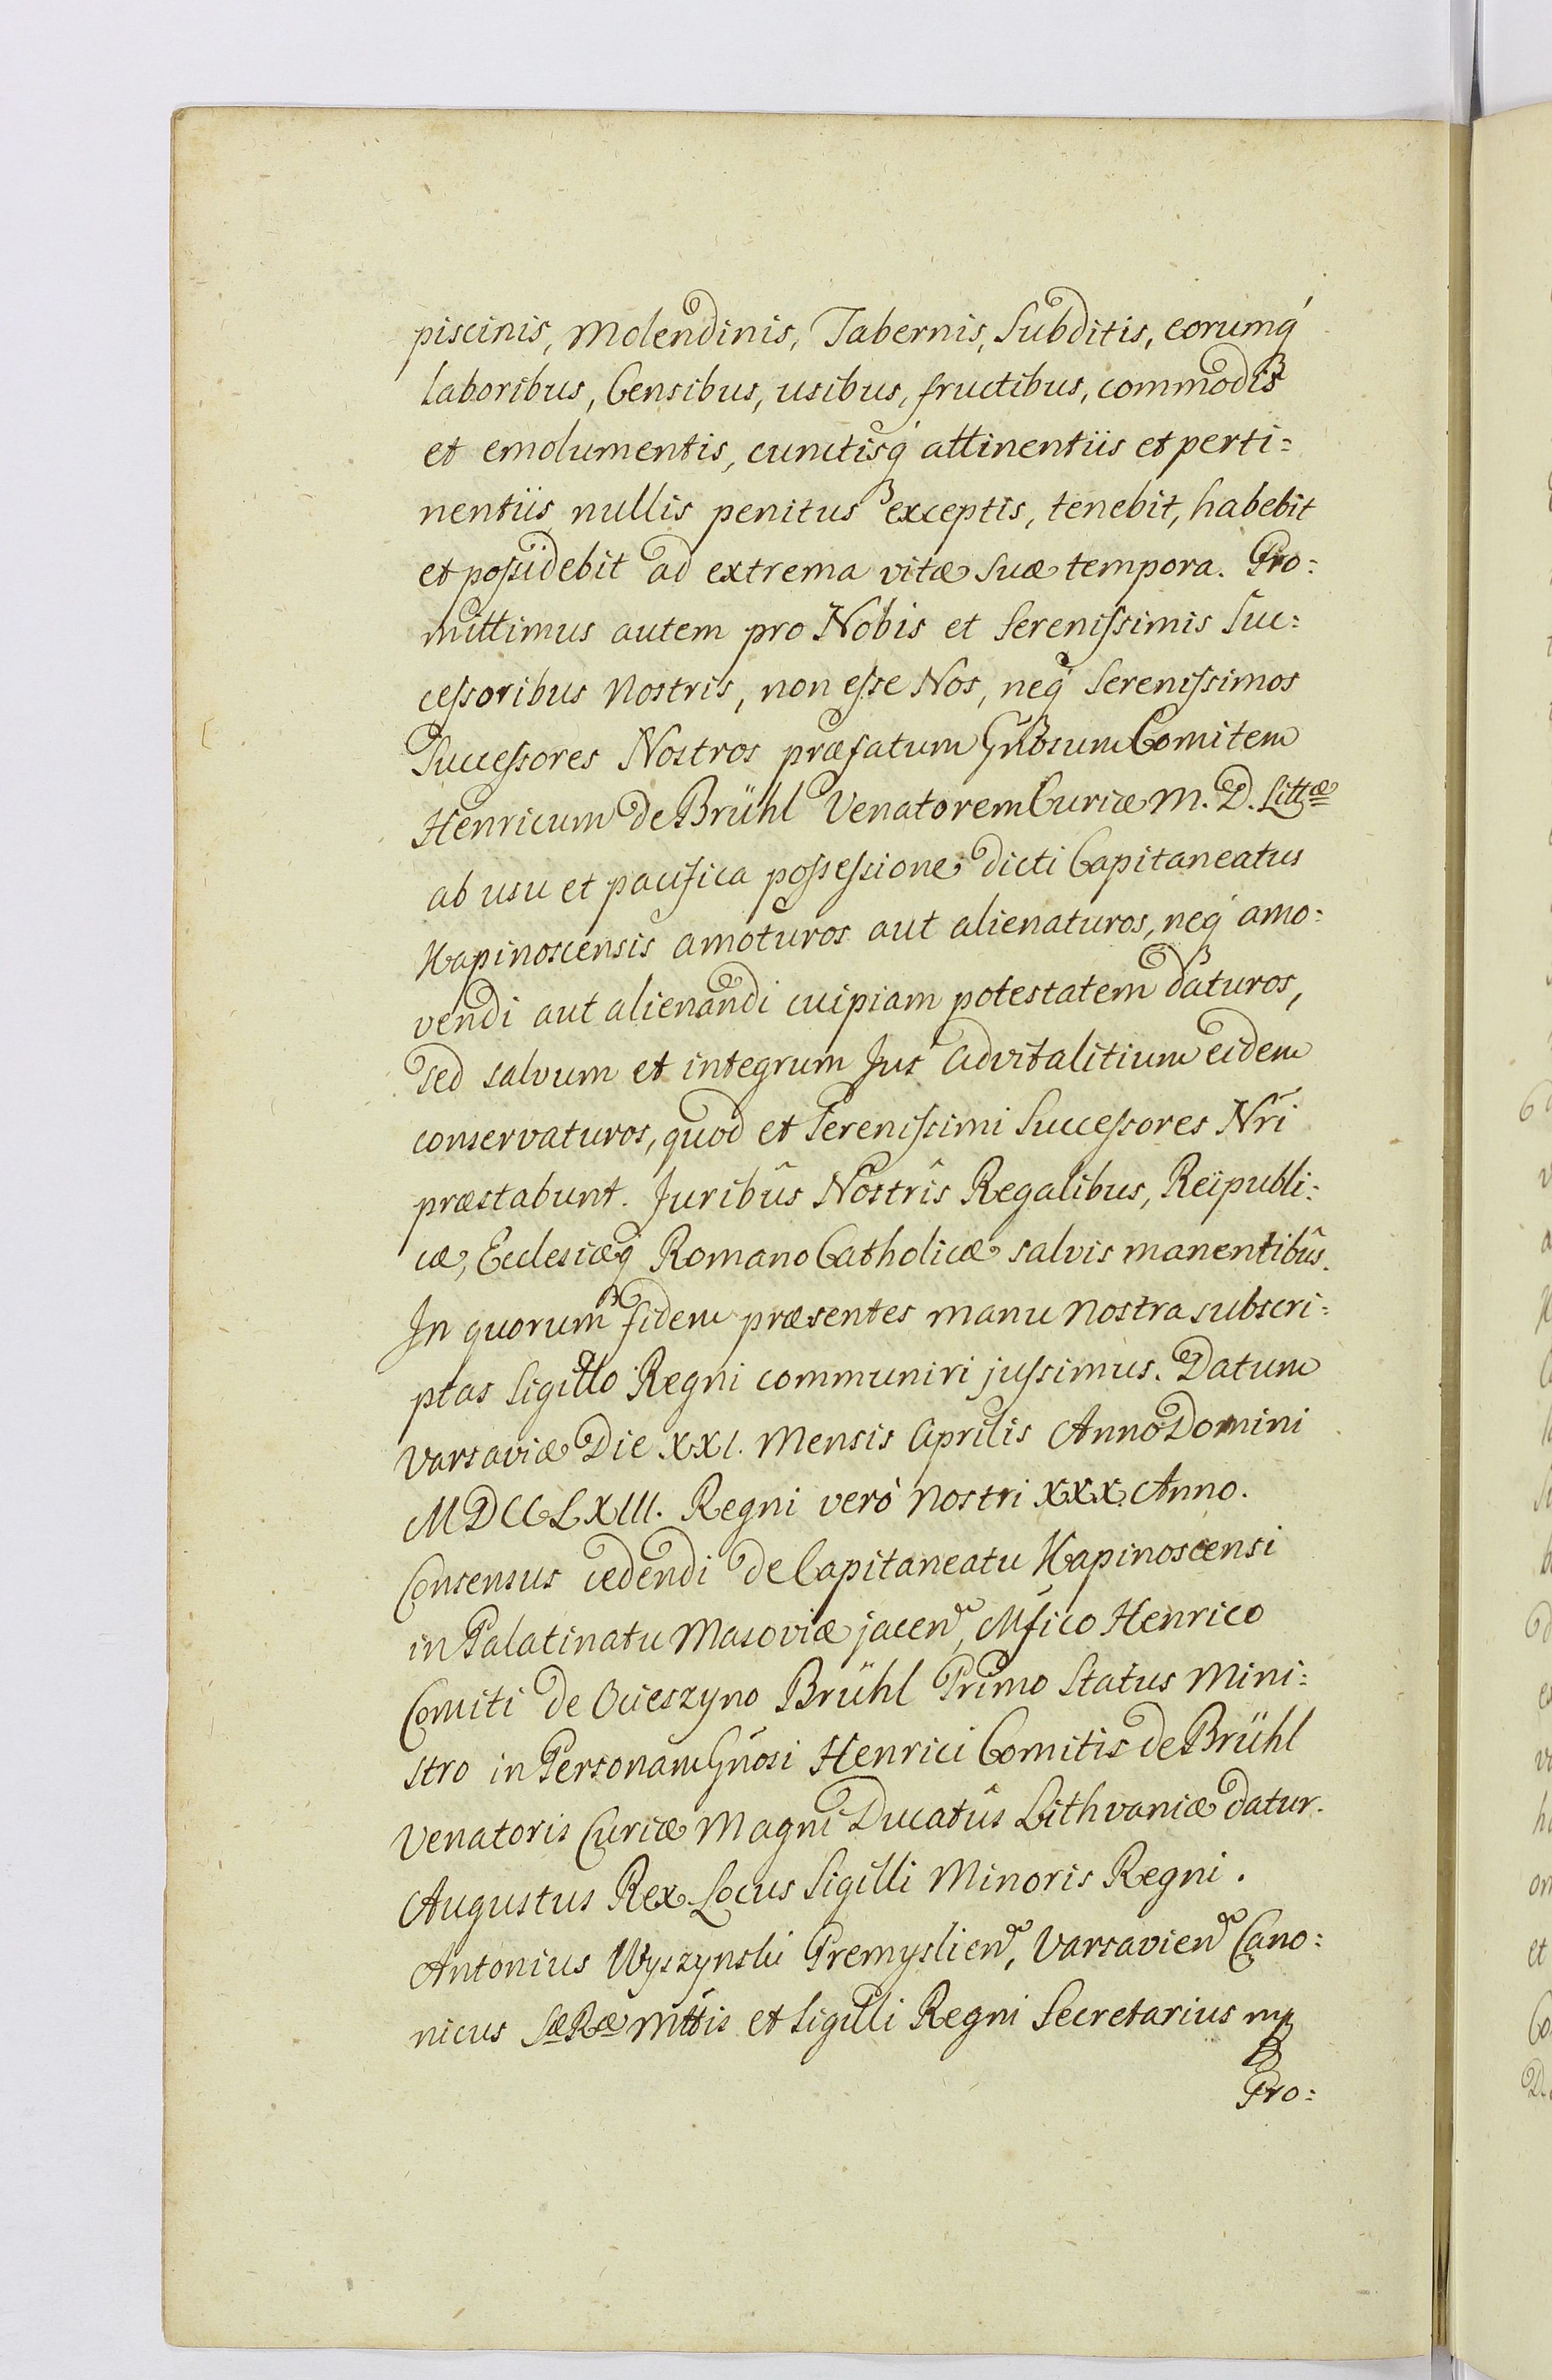 piscinis, Molendinis, Tabernis, Subditis, eorumq́
laboribus, Censibus, usibus, fructibus, commodis
et emolumentis, cunctisq́ attinentiis et perti=
nentiis nullis penitus exceptis, tenebit, habebit
et poſsidebit ad extrema vitæ suæ tempora. Pro=
mittimus autem pro Nobis et Sereniſsimis Suc=
ceſsoribus Nostris, non eſse Nos, neq́ Sereniſsimos
Succeſsores Nostros præfatum Gnosum Comitem
Henricum de Brühl Venatorem Curiæ M. D. Littæ
ab usu et pacifica poſseſsione dicti Capitaneatus
Kapinoscensis amoturos aut alienaturos, neq́ amo=
vendi aut alienandi cuipiam potestatem daturos,
sed salvum et integrum Jus Advitalitium eidem
conservaturos, quod et Sereniſsimi Succeſsores Nri
præstabunt. Juribûs Nostrîs Regalibus, Reipubli=
cæ, Ecclesiæq́ Romano Catholicæ salvis manentibûs.
In quorum fidem præsentes manu Nostra subscri=
ptas Sigillo Regni communiri juſsimus. Datum
Varsaviæ Die XXI. Mensis Aprilis Anno Domini
MDCCLXIII. Regni verò Nostri XXX Anno.
Consensus cedendi de Capitaneatu Kapinoscensi
in Palatinatu Masoviæ jacen, Mfico Henrico
Comiti de Ocieszyno Brühl Primo Status Mini=
stro in Personam Gnosi Henrici Comitis de Brühl
Venatoris Curiæ Magni Ducatûs Lithvaniæ datur.
Augustus Rex. Locus Sigilli Minoris Regni.
Antonius Wyszynski Premyslien, Varsavien Cano=
nicus Sæ Ræ Mttis et Sigilli Regni Secretarius mp
Pro=